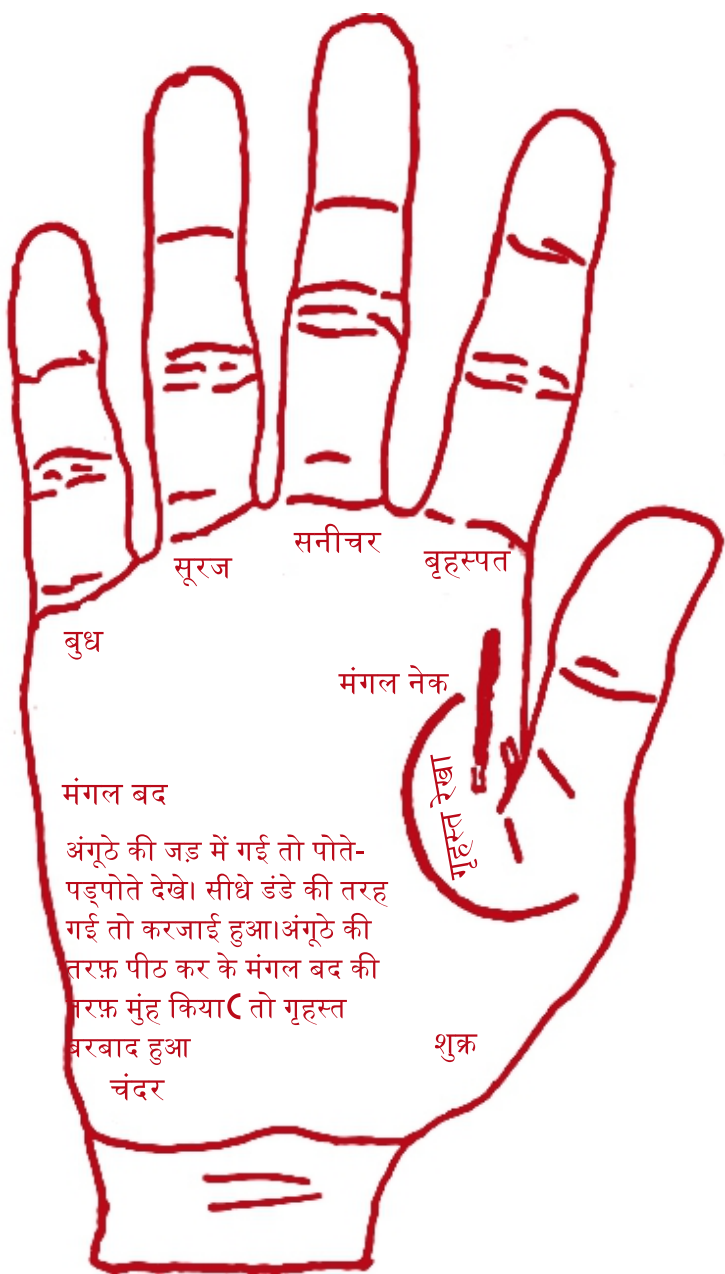 सनीचर
सूरज
बृहस्पत
बुध
मंगल नेक
गृहस्त रेखा
मंगल बद
अंगूठे की जड़ में गई तो पोते-
पड़पोते देखे। सीधे डंडे की तरह
गई तो करजाई हुआ।अंगूठे की
तरफ़ पीठ कर के मंगल बद की
तरफ़ मुंह किया( तो गृहस्त
बरबाद हुआ
शुक्र
चंदर